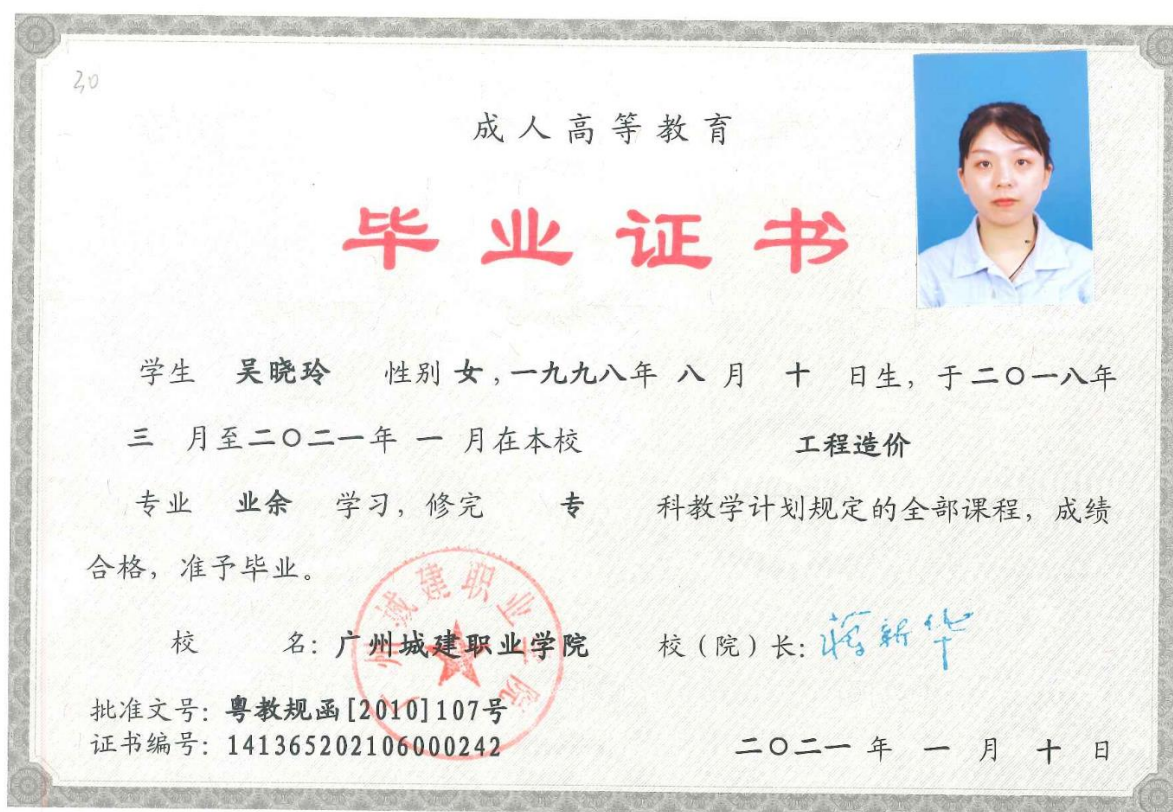 30
成人高等教育
毕业证书
学生 吴晓玲 性别 女，一九九八年 八 月 十 日生，于二〇一八年
三 月至二〇二一年 一 月在本校 工程造价
专业 业余 学习，修完 专 科教学计划规定的全部课程，成绩
合格，准予毕业。
广州城建职业学院
校 名：广州城建职业学院 校（院）长：蒋新华
批准文号：粤教规函[2010]107号
证书编号：141365202106000242 二〇二一 年 一 月 十 日